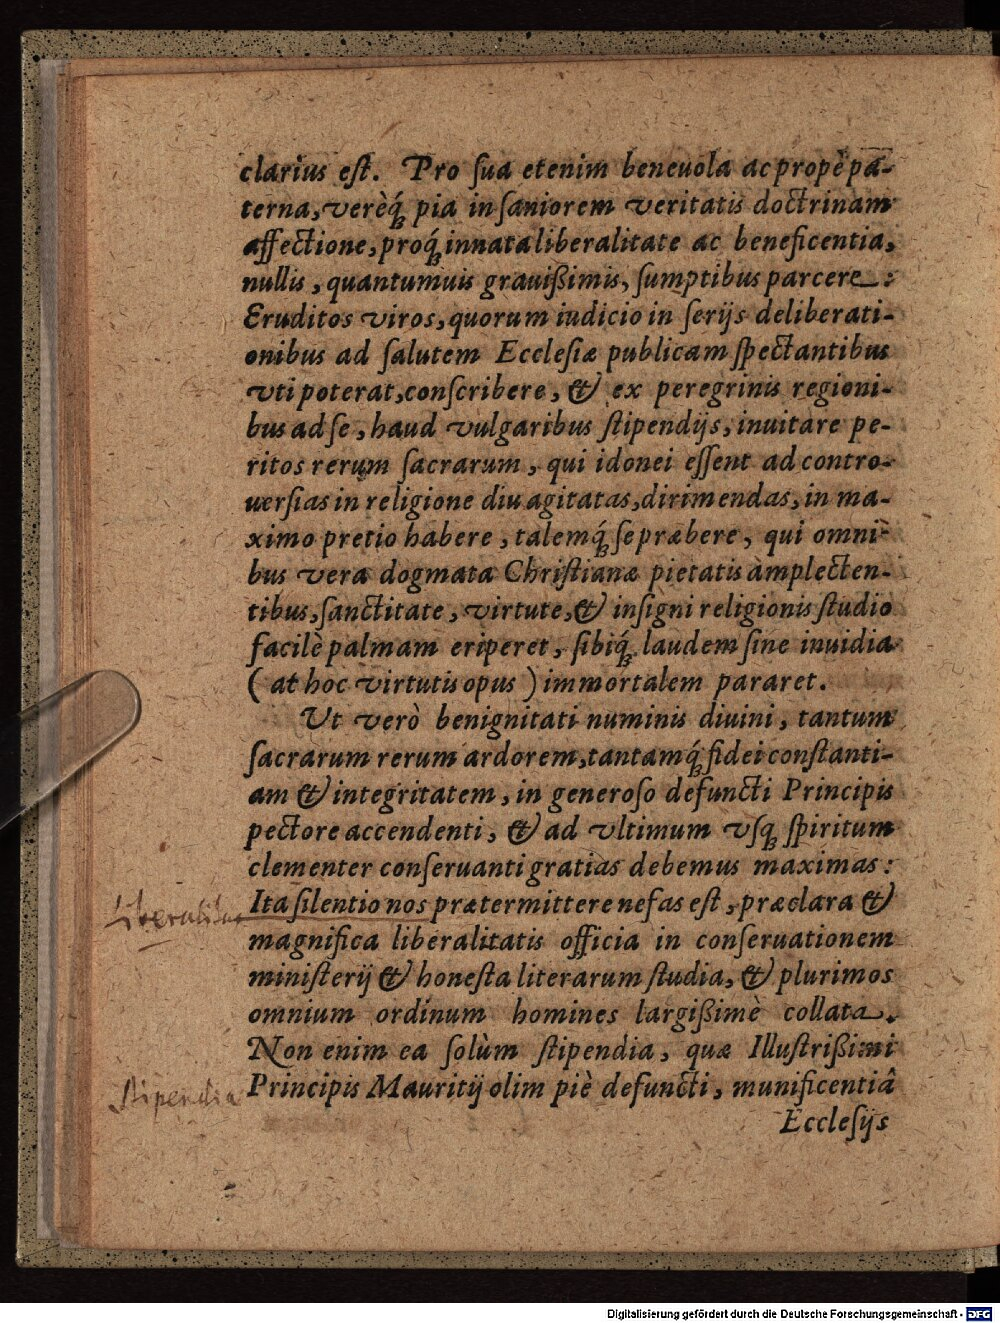 clarius eſt. Pro ſua etenim beneuola ac propè pa-
terna, verèq́ pia in ſaniorem veritatis doctrinam
affectione, proq́ innata liberalitate ac beneficentia,
nullis, quantumuis grauißimis, ſumptibus parcere:
Eruditos viros, quorum iudicio in ſerijs deliberati-
onibus ad ſalutem Eccleſiæ publicam ſpectantibus
vti poterat, conſcribere, & ex peregrinis regioni-
bus ad ſe, haud vulgaribus ſtipendijs, inuitare pe-
ritos rerum ſacrarum, qui idonei eſſent ad contro-
uerſias in religione diu agitatas, dirimendas, in ma-
ximo pretio habere, talemq́ ſe præbere, qui omni-
bus vera dogmata Chriſtianæ pietatis àmplecten-
tibus, ſanctitate, virtute, & inſigni religionis ſtudio
facilè palmam eriperet, ſibiq́ laudem ſine inuidia
(at hoc virtutis opus) immortalem pararet.
Ut verò benignitati numinis diuini, tantum
ſacrarum rerum ardorem, tantamq́ fidei conſtanti-
am & integritatem, in generoſo defuncti Principis
pectore accendenti, & ad vltimum vſq́ ſpiritum
clementer conſeruanti gratias debemus maximas:
Liberalitas Ita ſilentio nos prætermittere nefas eſt, præclara &
magnifica liberalitatis officia in conſeruationem
miniſterij & honeſta literarum ſtudia, & plurimos
omnium ordinum homines largißimè collata.
Non enim ea ſolùm ſtipendia, quæ Illuſtrißimi
Stipendia Principis Mauritij olim piè defuncti, munificentiâ
Eccleſijs
Digitalisierung gefördert durch die Deutsche Forschungsgemeinschaft - DFG